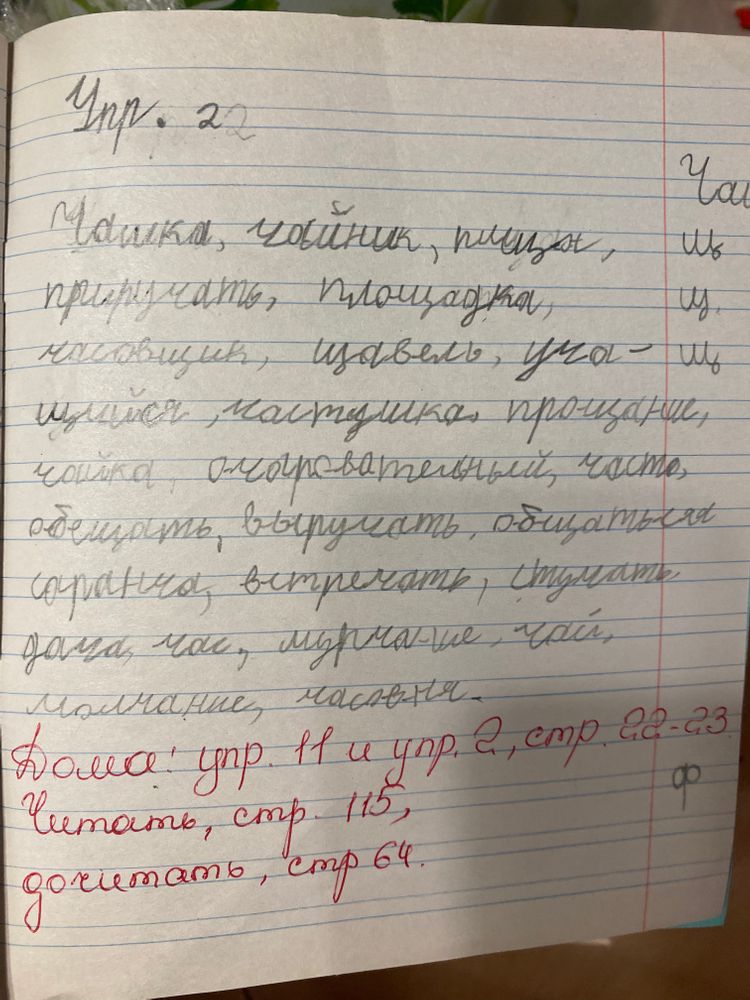 Упр. 22
Чашка, чайник, пища,
приручать, площадка,
часовщик, щавель, уча-
щийся, частушка, прощание,
чайка, очаровательный, часто,
обещать, выручать, общаться
саранча, встречать, стучать
дача, час, мурчание, чай,
молчание, часовня.
Дома: упр. 11 и упр. 2, стр. 22-23
Читать, стр. 115,
дочитать, стр 64.
Чаш
щ
щ
ф